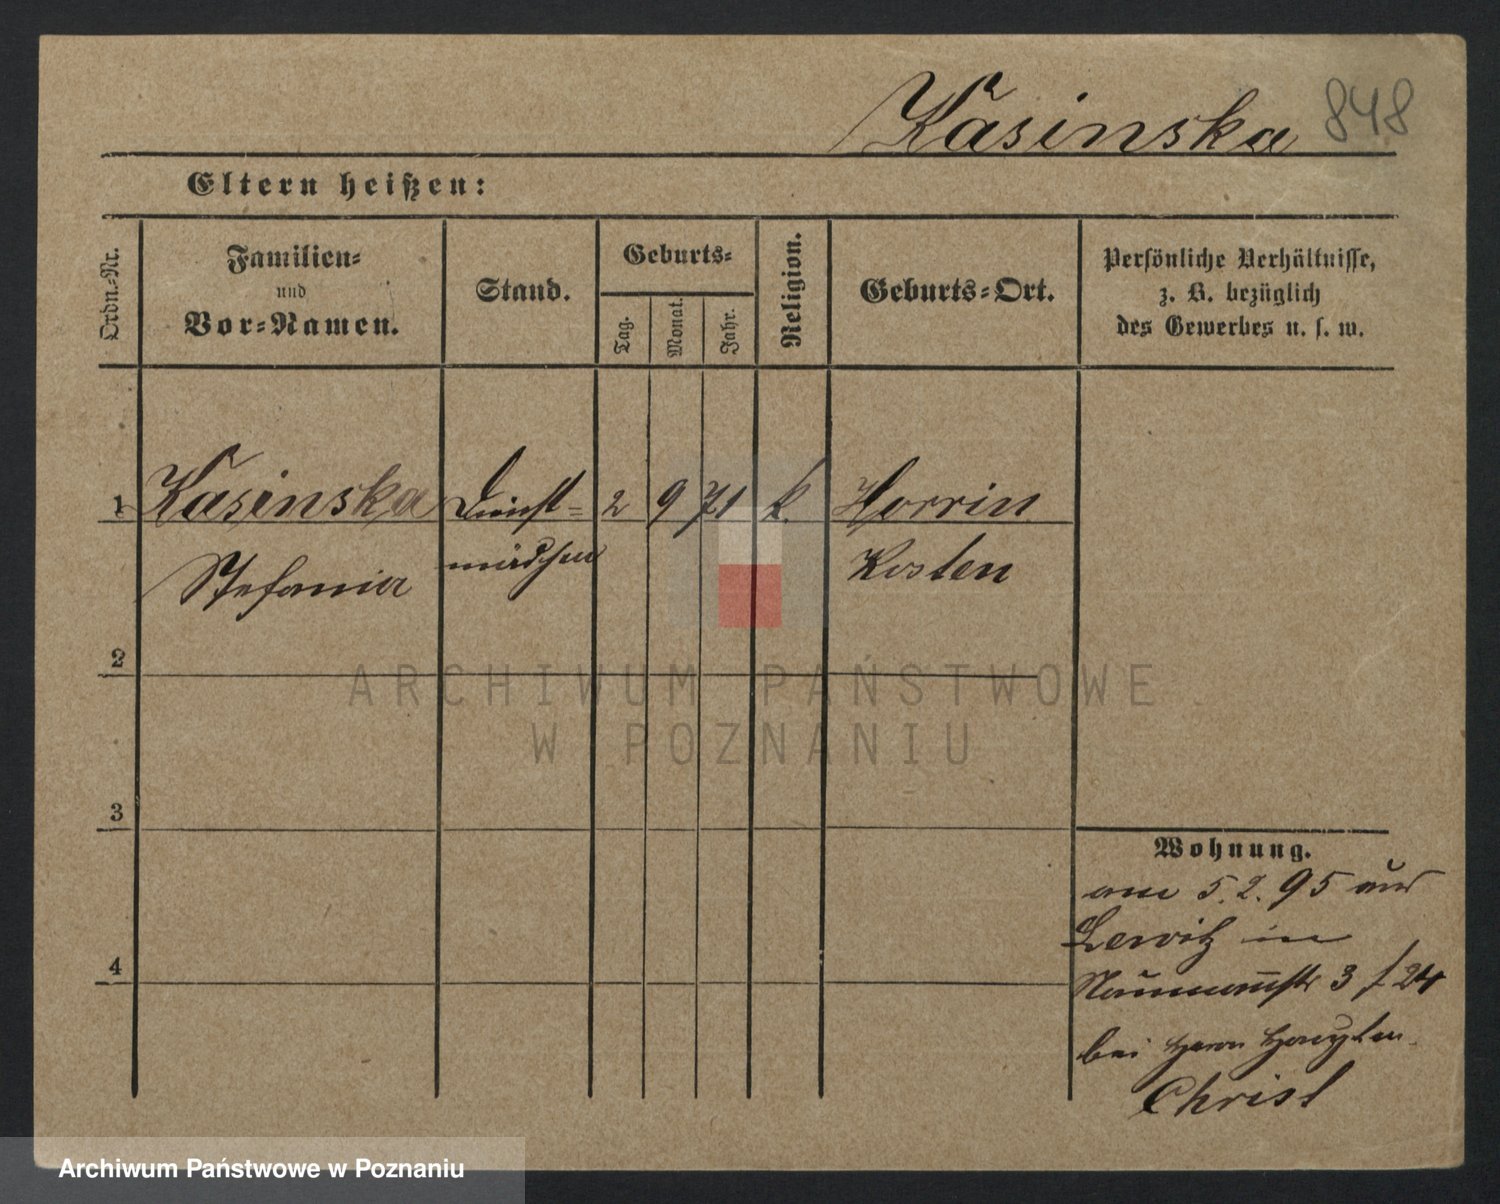 Kasinska 848
Eltern heißen:
Ordn.-Nr.
Familien-
und
Vor-Namen.
Stand.
Geburts-
Tag.
Monat.
Jahr.
Religion.
Geburts-Ort.
Persönliche Verhältnisse,
z. B. bezüglich
des Gewerbes u. s. w.
1 Kasinska Dienst- 2 9 71 k. Horrin
Stefania mädchen Kosten
2
ARCHIWUM PAŃSTWOWE
W POZNANIU
3
Wohnung.
am 5.2.95 aus
Lewitz in
4
Naumannstr 3 / 24
bei Herrn Hauptm.
Christ
Archiwum Państwowe w Poznaniu